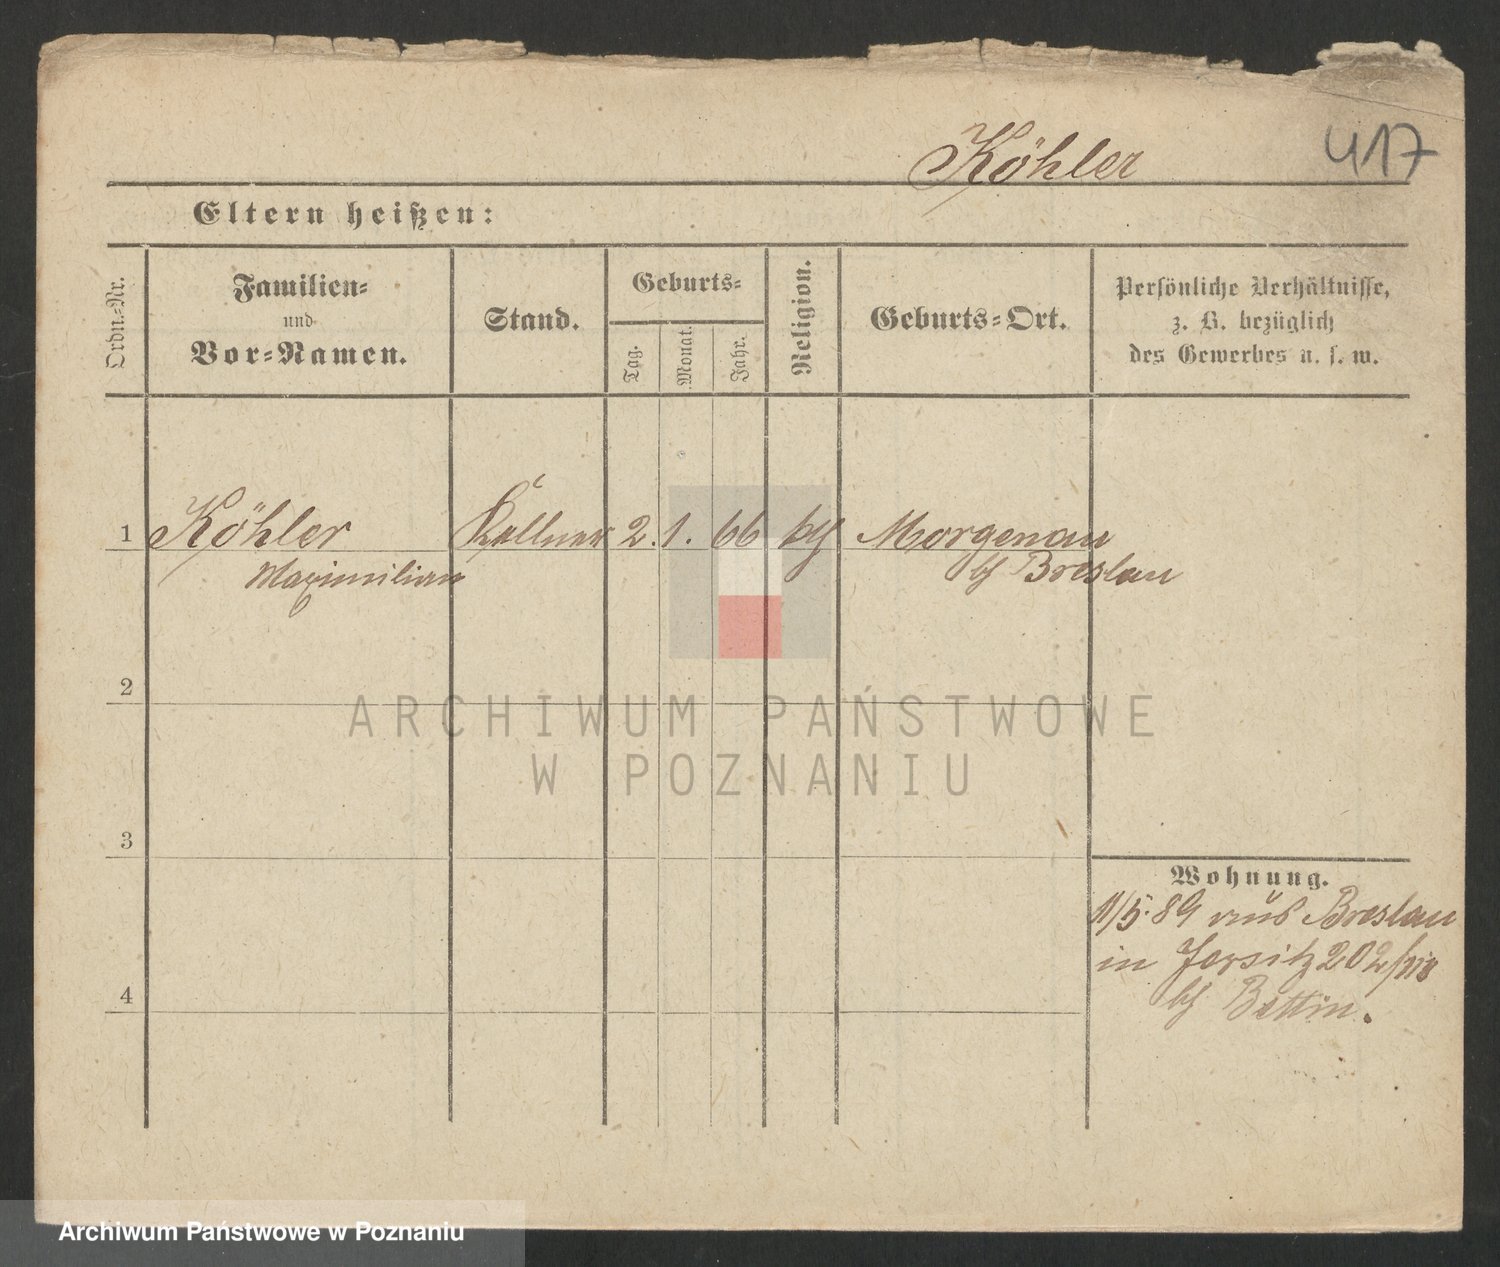 Köhler
417
Eltern heißen:
Ordn.-Nr.
Familien-
und
Vor-Namen.
Stand.
Geburts-
Tag.
Monat.
Jahr.
Religion.
Geburts-Ort.
Persönliche Verhältnisse,
z. B. bezüglich
des Gewerbes u. s. w.
1 Köhler Kellner 2. 1. 66 kth Morgenau
Maximilian b/ Breslau
2
ARCHIWUM PAŃSTWOWE
W POZNANIU
3
Wohnung.
11/5.89 aus Breslau
in Jersitz 202/
4
b/ Bettin.
Archiwum Państwowe w Poznaniu